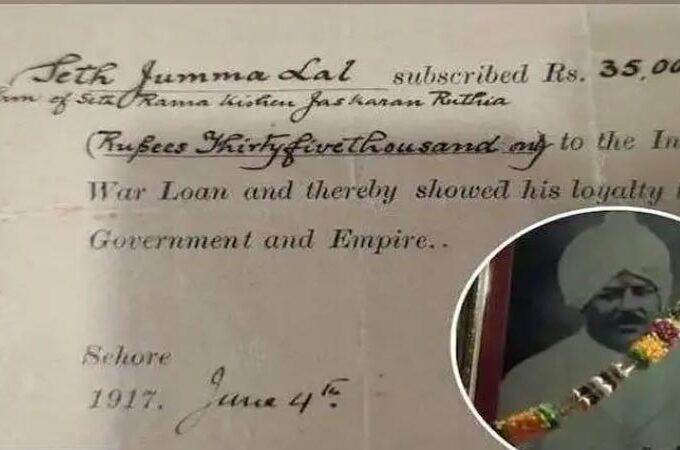 Seth Jumma Lal subscribed Rs. 35,00
of Seth Rama Kishen Jaskaran Ruthia
(Rupees Thirtyfivethousand only to the In
War Loan and thereby showed his loyalty
Government and Empire..
Sehore
1917. June 4th.